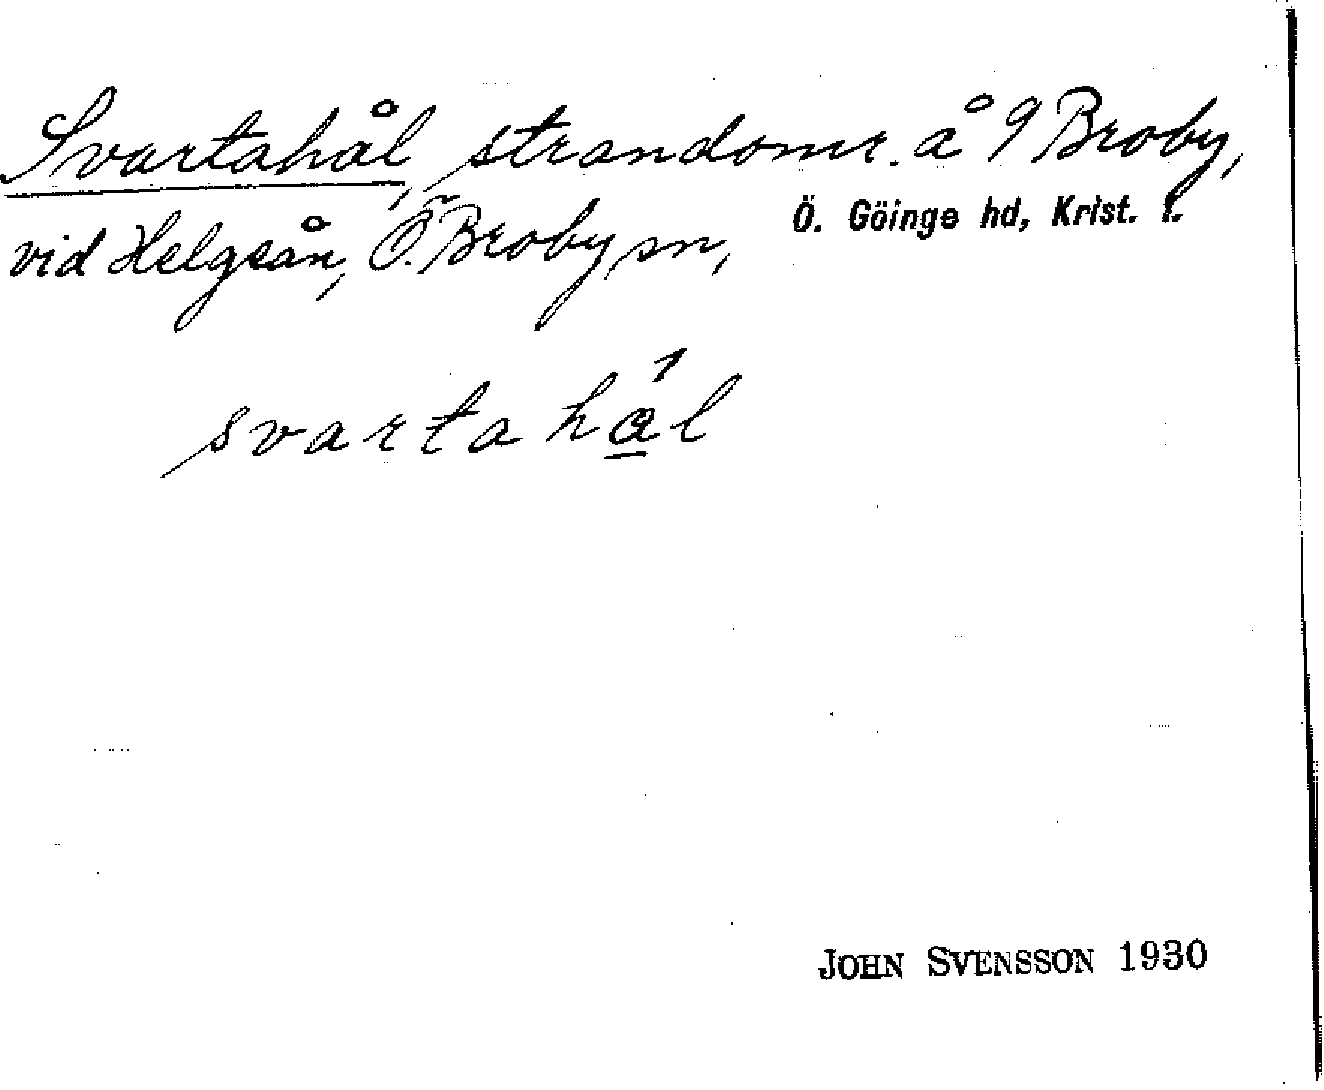 Svartahål, strandomr. å 9 Broby,
Ö. Göinge hd, Krist. l.
vid Helgeån, Ö. Broby sn,
svartahål
JOHN SVENSSON 1930